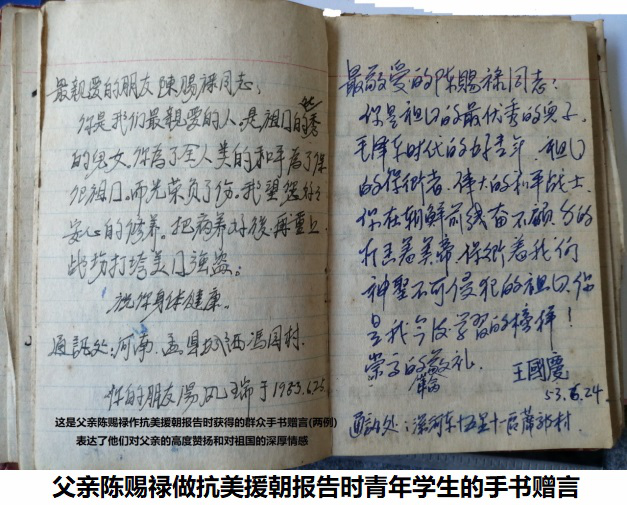 最親爱的朋友陳赐禄同志：
你是我们最親爱的人，是祖囗的优秀
的児女。你为了全人类的和平为了保
衛祖囗，而光荣负了伤。我望您好好
安心的修养。把病养好後，再重上
战场打垮美囗强盗。
祝你身体健康。
通訊处：河南 孟县 城西冯园村.
你的朋友 湯 瑞于1953.6.25.
最敬爱的陈赐禄同志：
你是祖囗的最优秀的児子，
毛泽东时代的好青年，祖囗
的保衛者，偉大的和平战士，
你在朝鲜前线奋不顾身的
打击着美帝，保衛着我们
神聖不可侵犯的祖囗，你
是我今后学習的榜样！
崇高的敬礼.
王國慶
53.6.24.
通訊处：
这是父亲陈赐禄作抗美援朝报告时获得的群众手书赠言(两例)
表达了他们对父亲的高度赞扬和对祖国的深厚情感
父亲陈赐禄做抗美援朝报告时青年学生的手书赠言